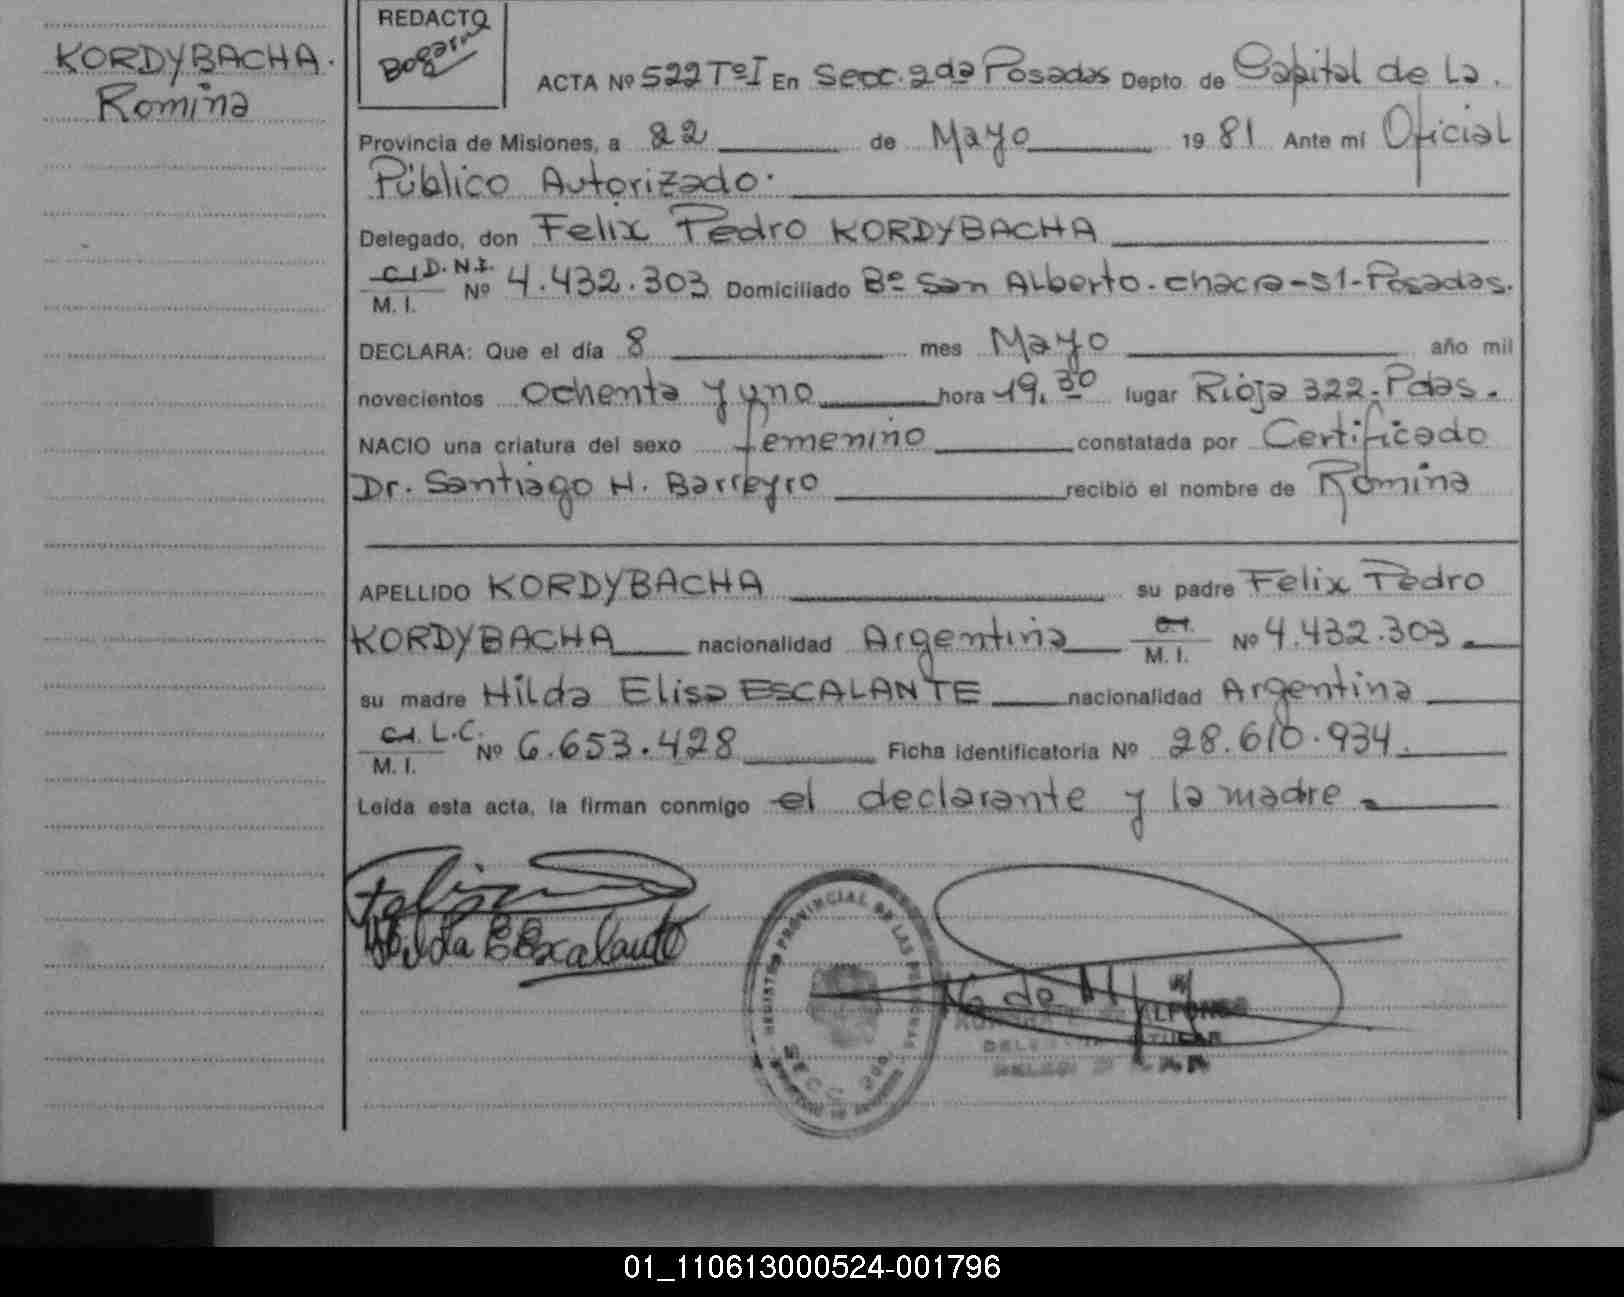 KORDYBACHA.
Romina
REDACTO
Bogarin
ACTA Nº 522 TºI En Secc. 2da Posadas Depto. de Capital de La.
Provincia de Misiones, a 22 de Mayo 19 81 Ante mi Oficial
Público Autorizado.
Delegado, don Felix Pedro KORDYBACHA
C.I. D.N.I.
M. I. Nº 4.432.303 Domiciliado Bº San Alberto. chacra-51-Posadas.
DECLARA: Que el día 8 mes Mayo año mil
novecientos ochenta y uno hora 19.30 lugar Rioja 322-Pdas.
NACIO una criatura del sexo femenino constatada por Certificado
Dr. Santiago H. Barreyro recibió el nombre de Romina
APELLIDO KORDYBACHA su padre Felix Pedro
KORDYBACHA nacionalidad Argentina C.I. M. I. Nº 4.432.303.
su madre Hilda Elisa ESCALANTE nacionalidad Argentina
C.I. L.C.
M. I. Nº 6.653.428 Ficha identificatoria Nº 28.610.934.
Leída esta acta, la firman conmigo el declarante y la madre.
Hilda E Escalante
REGISTRO PROVINCIAL DE LAS PERSONAS
SECC. 2da
01_110613000524-001796